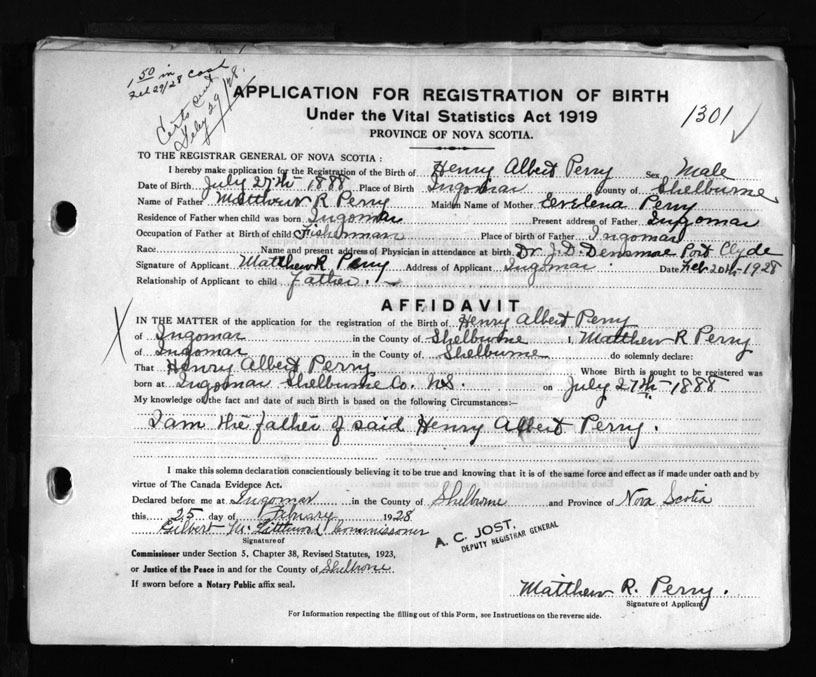 1.50 in cash
Feb 29/28
Certs sent
Feby 29/28.
APPLICATION FOR REGISTRATION OF BIRTH
Under the Vital Statistics Act 1919
PROVINCE OF NOVA SCOTIA.
1301 ✓
TO THE REGISTRAR GENERAL OF NOVA SCOTIA:
I hereby make application for the Registration of the Birth of Henry Albert Perry Sex Male
Date of Birth July 27th 1888 Place of Birth Ingomar County of Shelburne
Name of Father Matthew R Perry Maiden Name of Mother Evelena Perry
Residence of Father when child was born Ingomar Present address of Father Ingomar
Occupation of Father at Birth of child Fisherman Place of Birth of Father Ingomar
Race Name and present address of Physician in attendance at birth Dr J. D. Densmore Port Clyde
Signature of Applicant Matthew R Perry Address of Applicant Ingomar Date Feb 20th 1928
Relationship of Applicant to child father.
AFFIDAVIT
X
IN THE MATTER of the application for the registration of the Birth of Henry Albert Perry
of Ingomar in the County of Shelburne I, Matthew R Perry
of Ingomar in the County of Shelburne do solemnly declare:
That Henry Albert Perry Whose Birth is sought to be registered was
born at Ingomar Shelburne Co. N.S. on July 27th 1888
My knowledge of the fact and date of such Birth is based on the following Circumstances:—
I am the father of said Henry Albert Perry.
I make this solemn declaration conscientiously believing it to be true and knowing that it is of the same force and effect as if made under oath and by
virtue of The Canada Evidence Act.
Declared before me at Ingomar in the County of Shelburne and Province of Nova Scotia
this 25 day of February 1928
Gilbert M. Commissioner
Signature of
A. C. JOST,
DEPUTY REGISTRAR GENERAL
Commissioner under Section 5, Chapter 38, Revised Statutes, 1923,
or Justice of the Peace in and for the County of Shelburne
If sworn before a Notary Public affix seal.
Matthew R. Perry.
Signature of Applicant
For Information respecting the filling out of this Form, see Instructions on the reverse side.